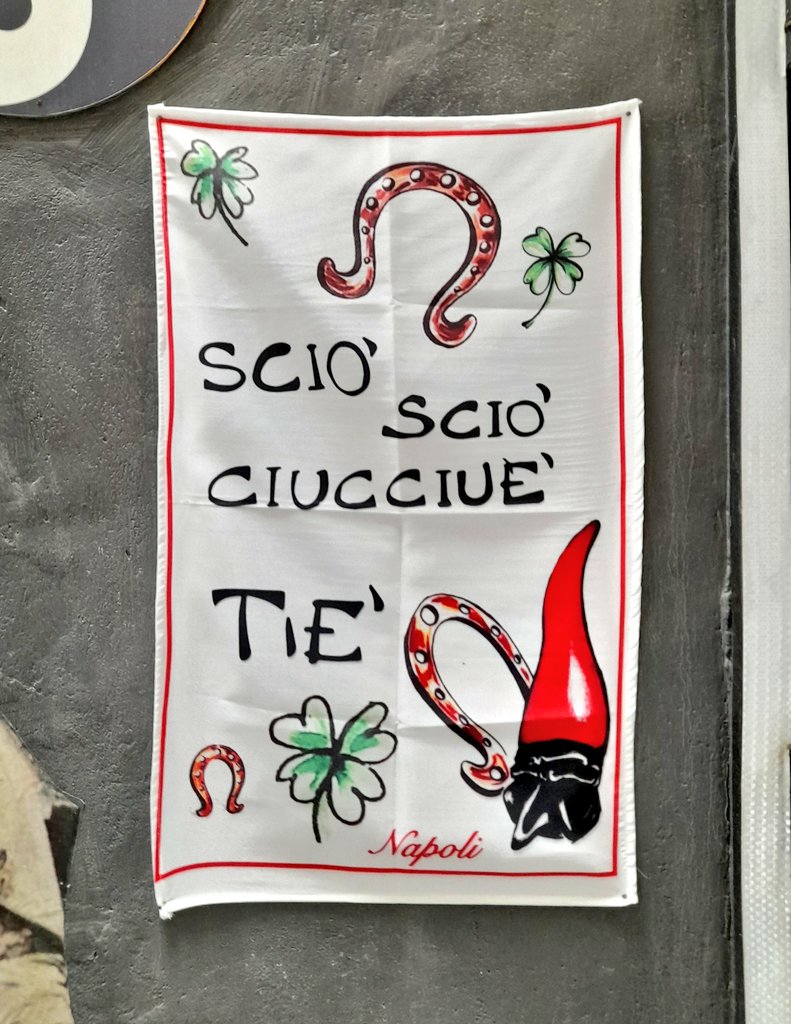 SCIO'
SCIO'
CIUCCIUE'
TIE'
Napoli